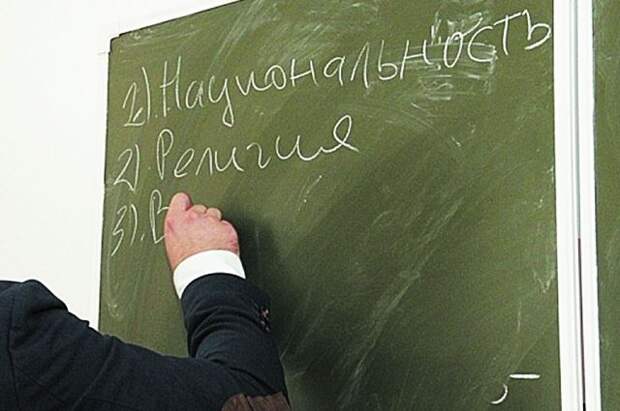 1). Национальность
2). Религия
3). В